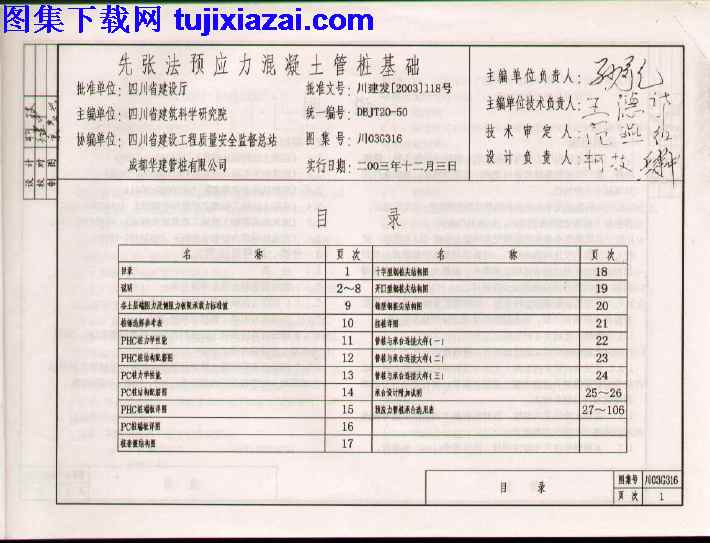 图集下载网 tujixiazai.com
先张法预应力混凝土管桩基础
批准单位：四川省建设厅
批准文号：川建发[2003]118号
主编单位：四川省建筑科学研究院
统一编号：DBJT20-50
协编单位：四川省建设工程质量安全监督总站
图集号：川03G316
成都华建管桩有限公司
实行日期：二00三年十二月三日
主编单位负责人：
主编单位技术负责人：
技术审定人：
设计负责人：
设计
校对
制图
目 录
名 称 页次 名 称 页次
目录 1 十字型钢桩尖结构图 18
说明 2～8 开口型钢桩尖结构图 19
各土层端阻力及侧阻力极限承载力标准值 9 锥型钢桩尖结构图 20
桩锤选择参考表 10 接桩详图 21
PHC桩力学性能 11 管桩与承台连接大样(一) 22
PHC桩结构配筋图 12 管桩与承台连接大样(二) 23
PC桩力学性能 13 管桩与承台连接大样(三) 24
PC桩结构配筋图 14 承台设计附加说明 25～26
PHC桩端板详图 15 预应力管桩承台选用表 27～106
PC桩端板详图 16
桩套箍结构图 17
目 录
图集号 川03G316
页次 1